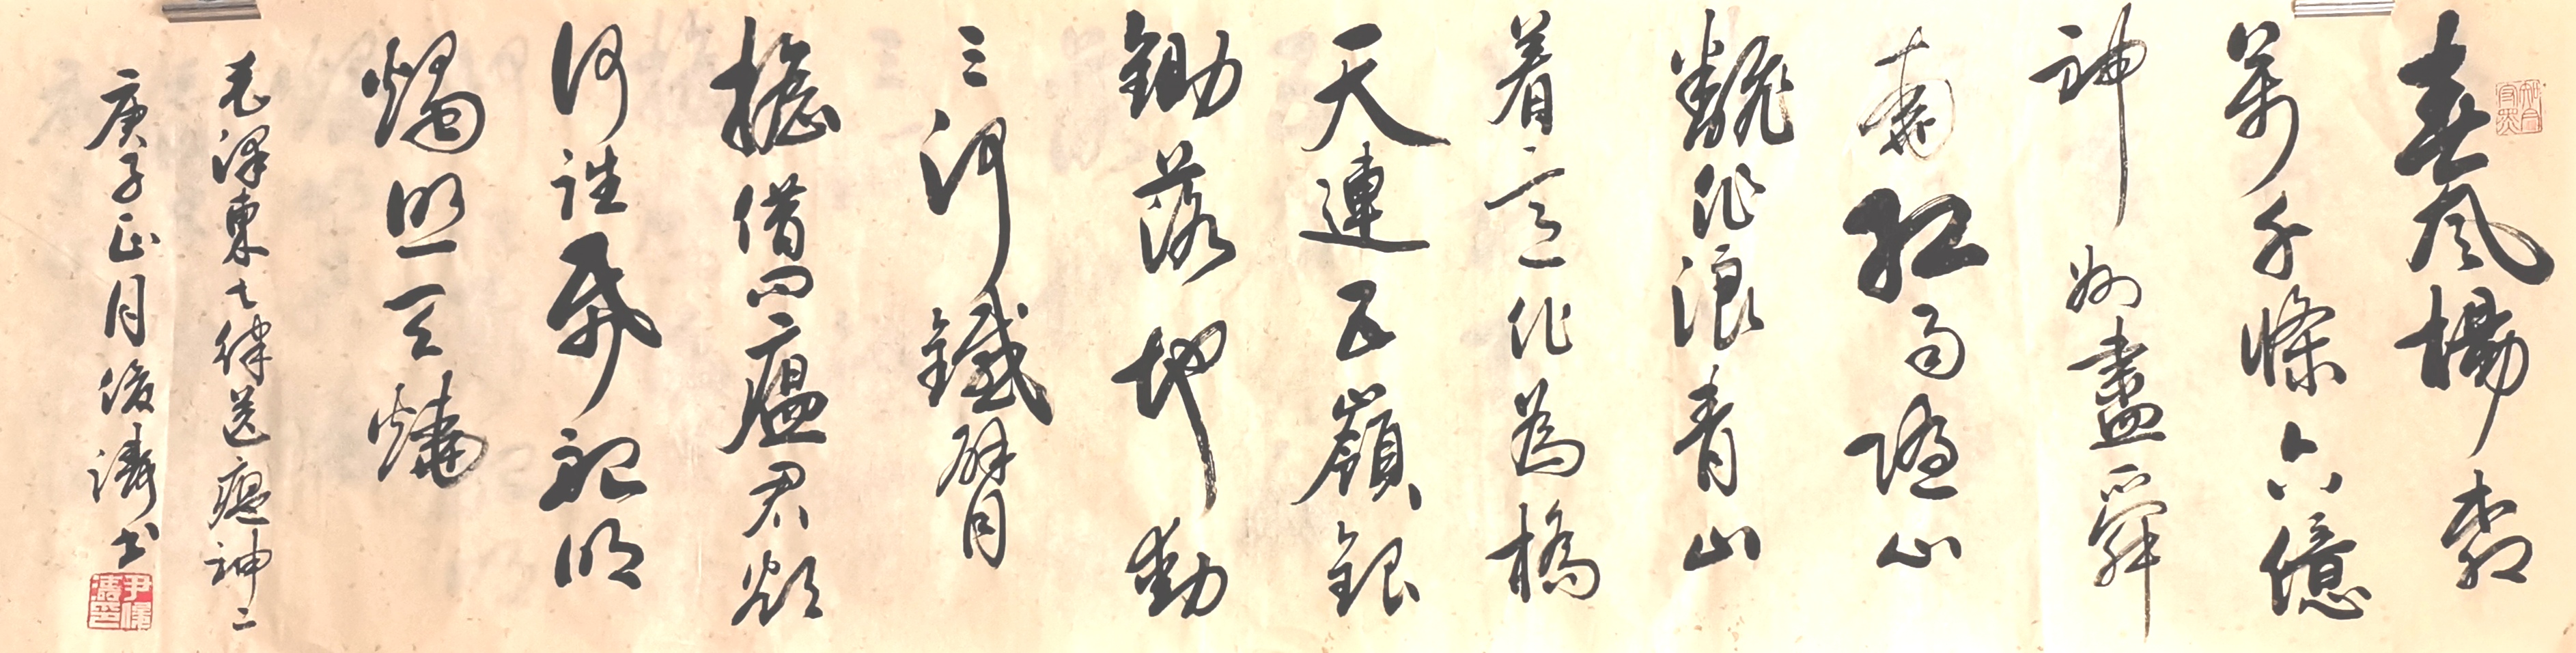 春風楊柳
萬千條六億
神州盡舜
堯紅雨隨心
飜作浪青山
着意化為橋
天連五嶺銀
鋤落地動
三河鐵臂
搖借問瘟君欲
何往帋船明
燭照天燒
毛澤東七律送瘟神二
庚子正月俊濤书
尹俊濤印